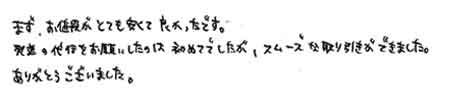 まず、お値段がとても安くて良かったです。
発送の代行をお願いしたのは初めてでしたが、スムーズな取り引きができました。
ありがとうございました。